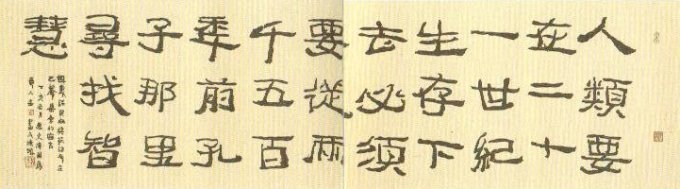 人類要
在二十
一世紀
生存下
去必須
要從兩
千五百
秊前孔
子那里
尋找智
慧